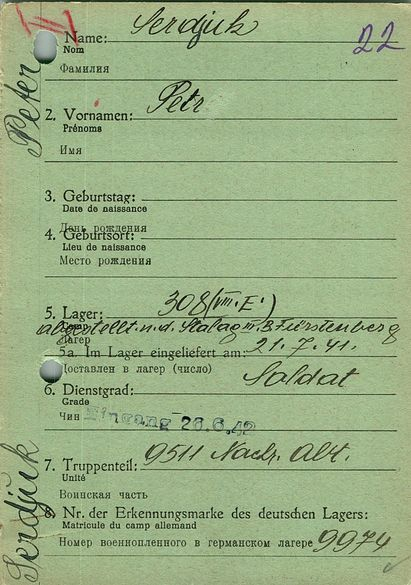 Name: Serdjuk
22
Nom
Фамилия
Peter
2. Vornamen: Petr
Prénoms
Имя
3. Geburtstag:
Date de naissance
День рождения
4. Geburtsort:
Lieu de naissance
Место рождения
5. Lager: 308 (VIII. E.)
abgestellt n. d. Stalag III. B Fürstenberg
Лагер
5a. Im Lager eingeliefert am: 21.7.41.
Доставлен в лагер (число)
6. Dienstgrad: Soldat
Grade
Чин
Eingang 26.6.42
7. Truppenteil: 9511 Nachr. Abt.
Unité
Воинская часть
Serdjuk
8. Nr. der Erkennungsmarke des deutschen Lagers:
Matricule du camp allemand
Номер военнопленного в германском лагере 9974